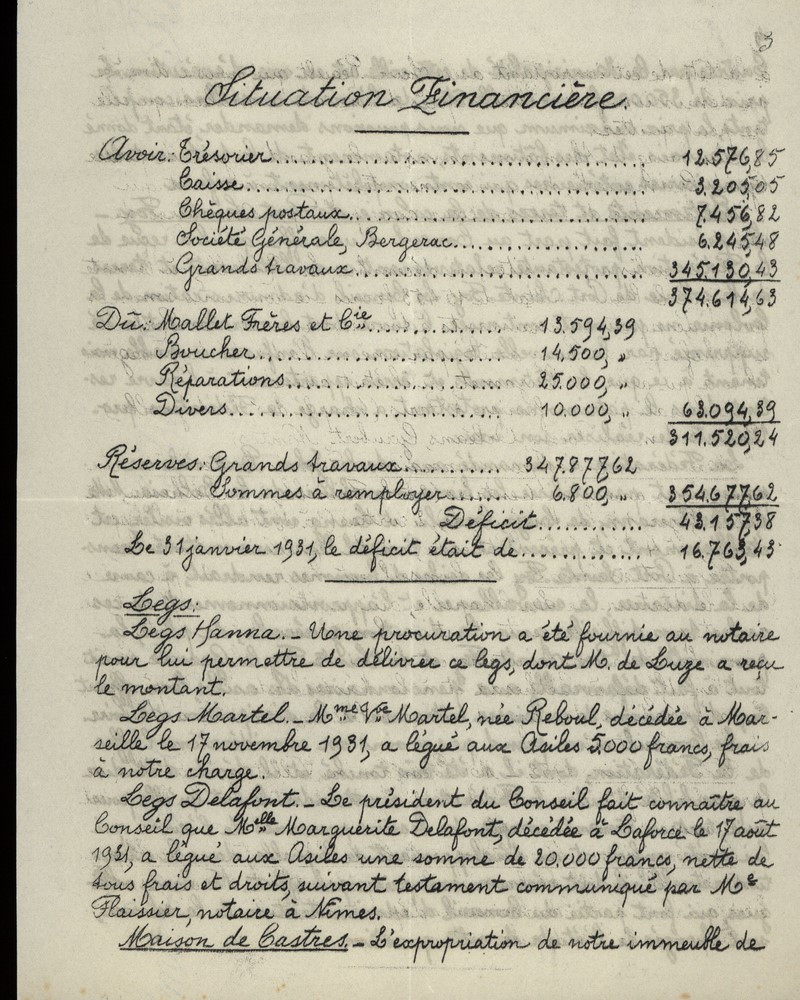 3
Situation Financière.
Avoir: Trésorier........ 12.576,85
Caisse........ 3.205,05
Chèques postaux........ 7.456,82
Société Générale, Bergerac........ 6.245,48
Grands travaux........ 345.130,43
374.614,63
Dû: Mallet Frères et Cie........ 13.594,39
Boucher........ 14.500, "
Réparations........ 25.000, "
Divers........ 10.000, " 63.094,39
311.520,24
Réserves: Grands travaux........ 347.877,62
Sommes à remployer........ 6.800, " 354.677,62
Déficit........ 43.157,38
Le 31 janvier 1931, le déficit était de........ 16.763,43
Legs:
Legs Hanna. - Une procuration a été fournie au notaire
pour lui permettre de délivrer ce legs, dont M. de Luze a reçu
le montant.
Legs Martel. - Mme Vve Martel, née Reboul, décédée à Mar-
seille le 17 novembre 1931, a légué aux Asiles 5.000 francs, frais
à notre charge.
Legs Delafont. - Le président du Conseil fait connaître au
Conseil que Melle Marguerite Delafont, décédée à Laforce le 17 août
1931, a légué aux Asiles une somme de 20.000 francs, nette de
tous frais et droits, suivant testament communiqué par Me
Flaissier, notaire à Nîmes.
Maison de Castres. - L'expropriation de notre immeuble de